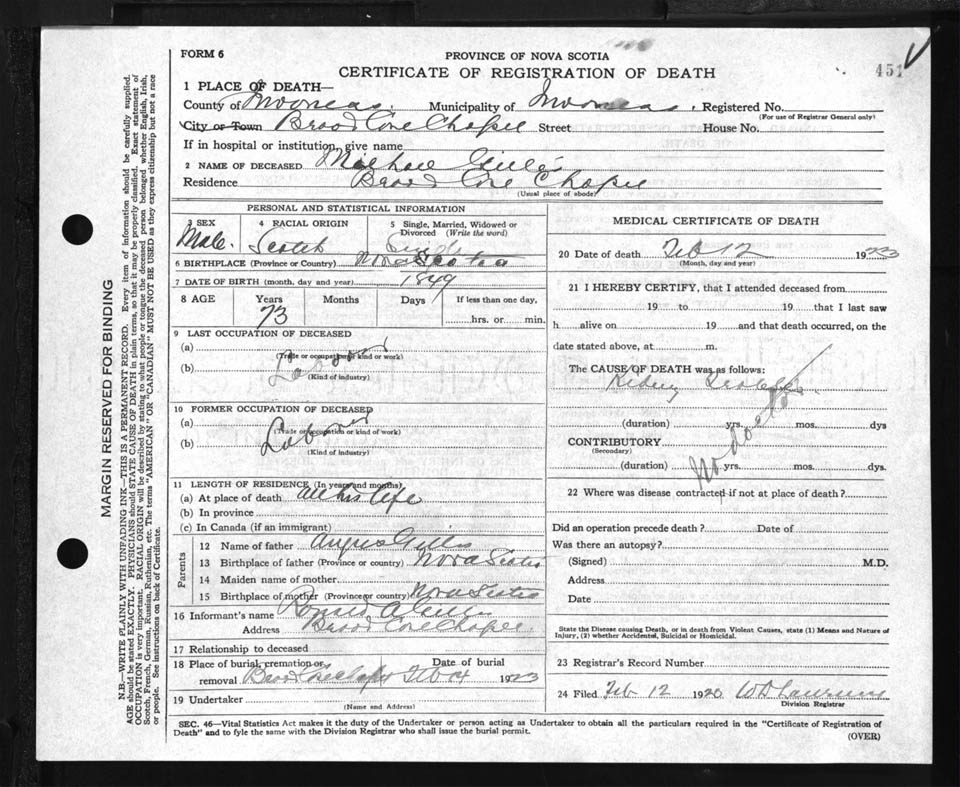 FORM 6
PROVINCE OF NOVA SCOTIA
CERTIFICATE OF REGISTRATION OF DEATH
451
1 PLACE OF DEATH—
County of Inverness. Municipality of Inverness. Registered No.
(For use of Registrar General only)
City or Town Broad Cove Chapel Street House No.
If in hospital or institution, give name
2 NAME OF DECEASED Michael Gillis
Residence Broad Cove Chapel
(Usual place of abode)
PERSONAL AND STATISTICAL INFORMATION
3 SEX
Male.
4 RACIAL ORIGIN
Scotch
5 Single, Married, Widowed or Divorced (Write the word)
Single
6 BIRTHPLACE (Province or Country) Nova Scotia
7 DATE OF BIRTH (month, day and year) 1849
8 AGE Years Months Days If less than one day,
73 hrs. or min.
9 LAST OCCUPATION OF DECEASED
(a)
(Trade or occupation or kind of work)
(b) Laborer
(Kind of industry)
10 FORMER OCCUPATION OF DECEASED
(a)
(Trade or occupation or kind of work)
(b) Laborer
(Kind of industry)
11 LENGTH OF RESIDENCE (In years and months)
(a) At place of death all his life
(b) In province
(c) In Canada (if an immigrant)
Parents
12 Name of father Angus Gillis
13 Birthplace of father (Province or country) Nova Scotia
14 Maiden name of mother
15 Birthplace of mother (Province or country) Nova Scotia
16 Informant's name Ronald A Gillis
Address Broad Cove Chapel
17 Relationship to deceased
18 Place of burial, cremation or removal Date of burial
Broad Cove Chapel Feb 1923
19 Undertaker
(Name and Address)
MEDICAL CERTIFICATE OF DEATH
20 Date of death Feb 12 1923
(Month, day and year)
21 I HEREBY CERTIFY, that I attended deceased from
19 to 19 that I last saw
h alive on 19 and that death occurred, on the
date stated above, at m.
The CAUSE OF DEATH was as follows:
Kidney Trouble
(duration) yrs. mos. dys
CONTRIBUTORY
(Secondary)
(duration) yrs. mos. dys.
No doctor
22 Where was disease contracted if not at place of death?
Did an operation precede death? Date of
Was there an autopsy?
(Signed) M.D.
Address
Date
State the Disease causing Death, or in death from Violent Causes, state (1) Means and Nature of
Injury, (2) whether Accidental, Suicidal or Homicidal.
23 Registrar's Record Number
24 Filed Feb 12 1920
Division Registrar
SEC. 46—Vital Statistics Act makes it the duty of the Undertaker or person acting as Undertaker to obtain all the particulars required in the "Certificate of Registration of
Death" and to fyle the same with the Division Registrar who shall issue the burial permit.
(OVER)
MARGIN RESERVED FOR BINDING
N.B.—WRITE PLAINLY WITH UNFADING INK—THIS IS A PERMANENT RECORD. Every item of information should be carefully supplied.
AGE should be stated EXACTLY. PHYSICIANS should STATE CAUSE OF DEATH in plain terms, so that it may be properly classified. Exact statement of
OCCUPATION is very important. RACIAL ORIGIN will be described by stating to what people or tongue the deceased person belonged, whether English, Irish,
Scotch, French, German, Russian, Ruthenian, etc. The terms "AMERICAN" or "CANADIAN" MUST NOT BE USED as they express citizenship but not a race
or people. See instructions on back of Certificate.